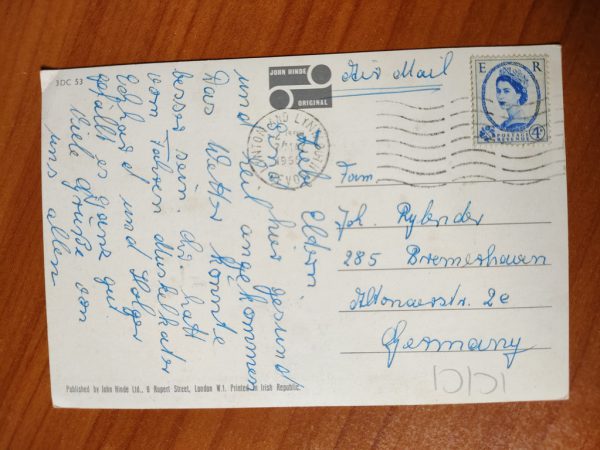 3DC 53
JOHN HINDE
ORIGINAL
Air Mail
E R
POSTAGE REVENUE
4D
LYNTON AND LYNMOUTH
Liebe Eltern!
Sind hier gesund
und heil angekommen
Das Wetter könnte
besser sein. Ich hatt
vom Fahren Muskelkater
und Holger
gefällt es ganz gut
Viele Grüße von
uns allen
Fam.
Joh. Rylender
285 Bremerhaven
Altonaerstr. 2c
Germany
Published by John Hinde Ltd., 6 Rupert Street, London W.1. Printed in Irish Republic.